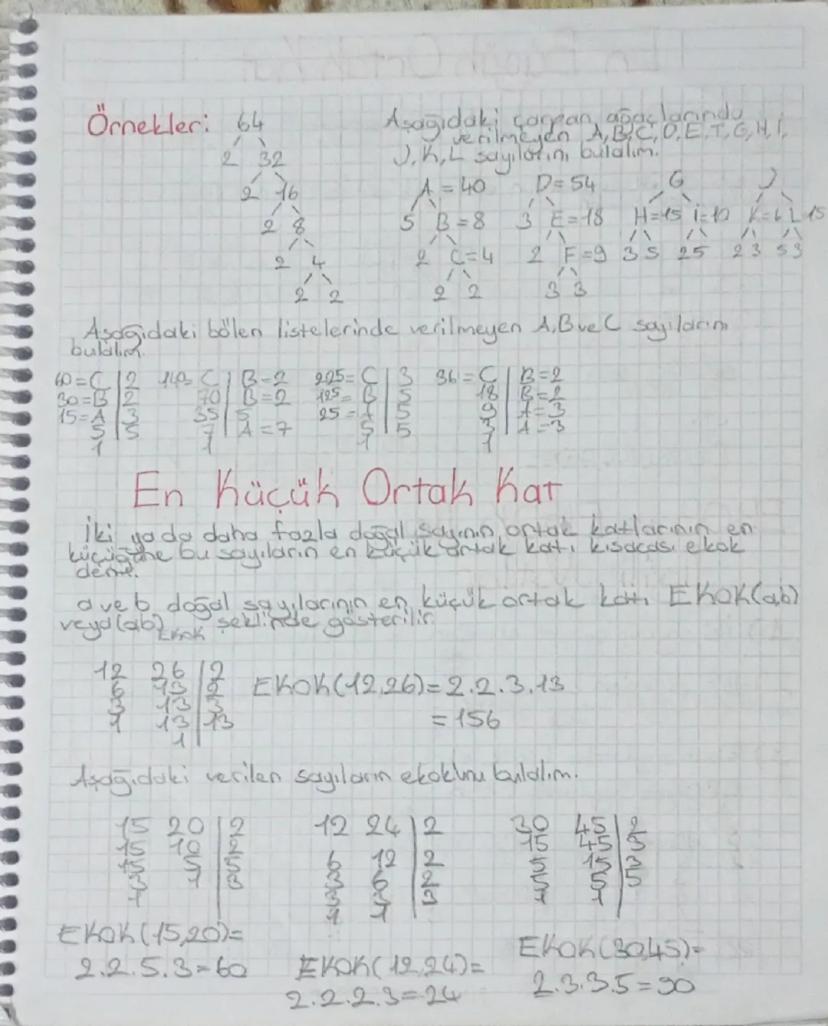 Örnekleri: 64
2 32
2 16
2 8
2 4
2 2
Aşağıdaki çarpan ağaçlarında
verilmeyen A, B, C, D, E, T, G, H, I,
J, K, L sayılarını bulalım.
A = 40 D = 54 G J
5 B = 8 3 E = 18 H = 15 i = 10 K = 6 L 15
2 C = 4 2 F = 9 3 5 2 5 2 3 5 3
2 2 3 3
Aşağıdaki bölen listelerinde verilmeyen A, B ve C sayılarını
bulalım.
60 = C | 2 140 = C | B = 2 = C | 3 36 = C | B = 2
30 = B | 2 70 | B = 2 125 = B | 5 18 | B = 2
15 = A | 3 35 | 5 25 = A | 5 9 | A = 3
5 | 5 7 | A = 7 5 | 5 3 | A = 3
1 1 1 1
En Küçük Ortak Kat
İki ya da daha fazla doğal sayının ortak katlarının en
küçüğüne bu sayıların en küçük ortak katı kısacası ekok
denir.
a ve b doğal sayılarının en küçük ortak katı EKOK(ab)
veya (ab) EKOK şeklinde gösterilir
12 26 | 2
6 13 | 2
3 13 | 3
1 13 | 13
1
EKOK(12,26) = 2.2.3.13
= 156
Aşağıdaki verilen sayıların ekokunu bulalım.
15 20 | 2 12 24 | 2 30 45 | 2
15 10 | 2 6 12 | 2 15 45 | 3
15 5 | 5 3 6 | 2 5 15 | 3
3 1 | 3 3 3 | 3 5 5 | 5
1 1 1 1 1
EKOK(15,20) =
2.2.5.3 = 60
EKOK(12,24) =
2.2.2.3 = 24
EKOK(30,45) =
2.3.3.5 = 90